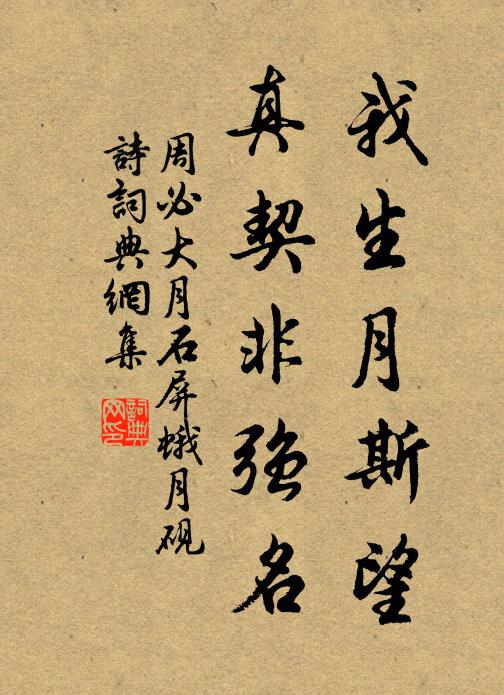 我生月斯望
真契非強名
周必大月石屏蛾月硯
詩詞典網集
詞典网印